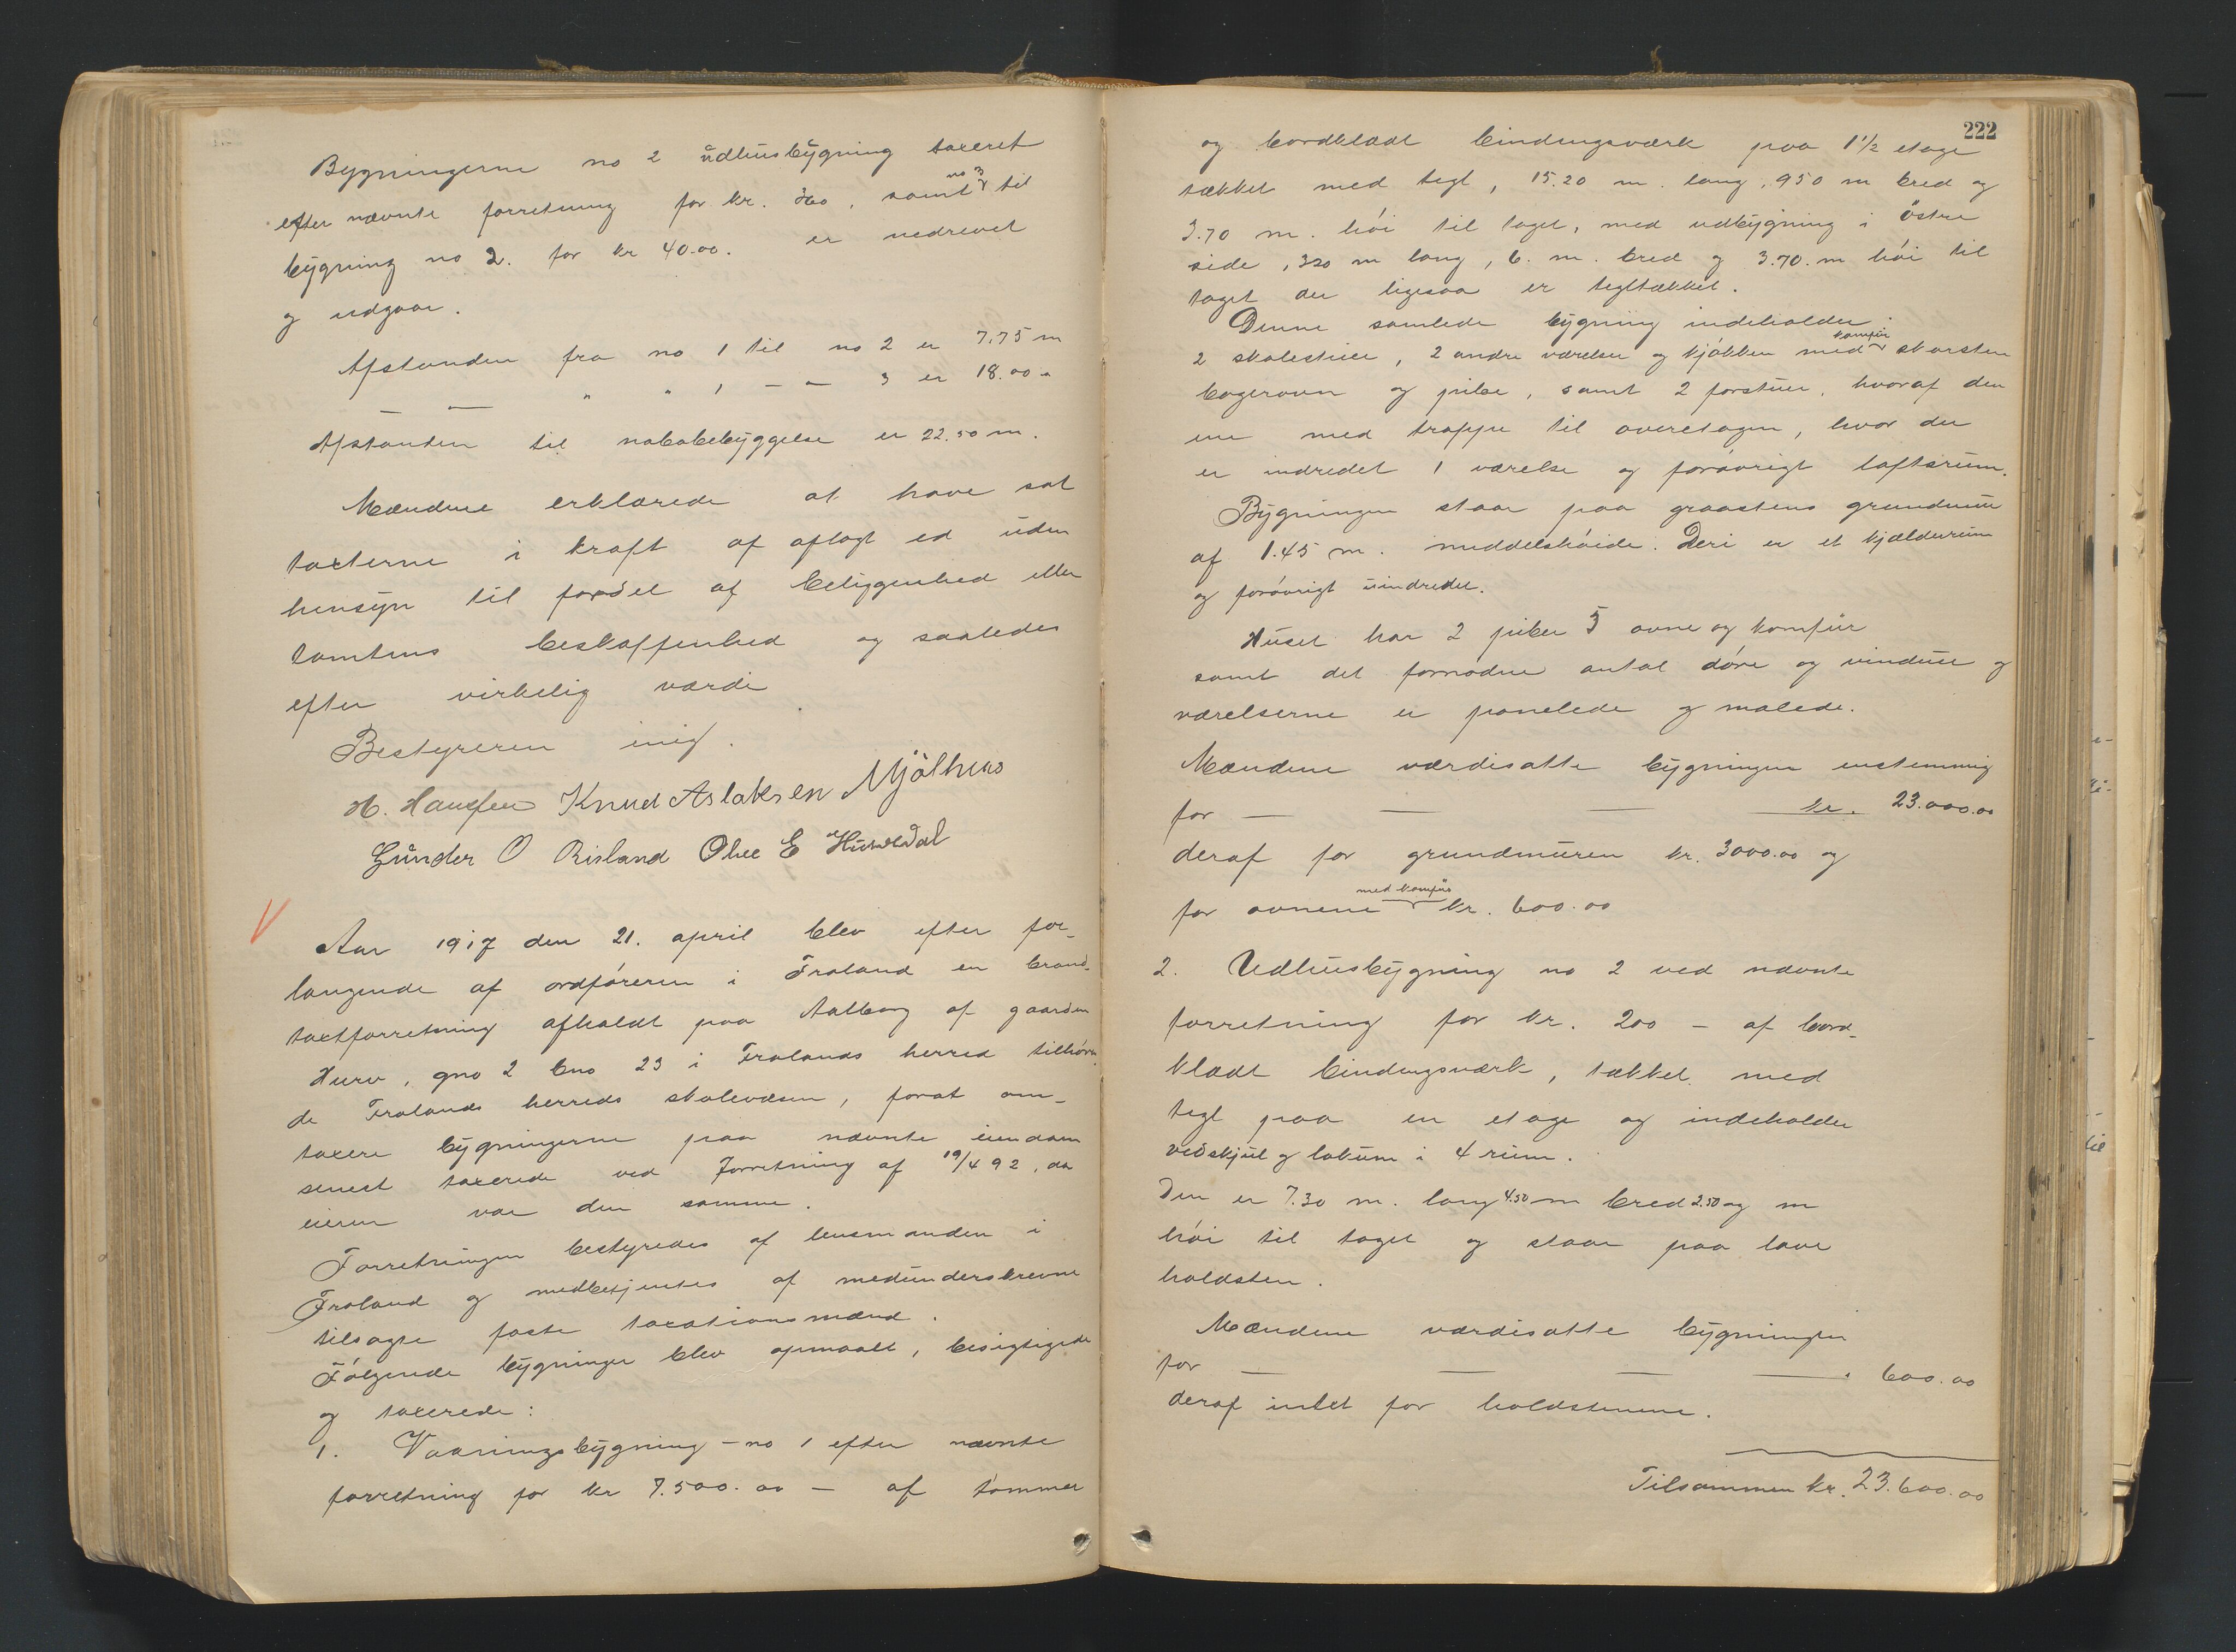 Bygningerne no 2 udhusbygning taxeret
efter nævnte forretning for kr. 360, samt no 3 til
bygning no 2. for kr 40.00. er nedrevet
og udgaar.
Afstanden fra no 1 til no 2 er 7.75 m
— — " " 1 — " — 3 er 18.00 "
Afstanden til nabobebyggelse er 22.50 m.
Mændene erklærede at have sat
taxterne i kraft af aflagt ed uden
hensyn til fordel af beliggenhed eller
tomtens beskaffenhed og saaledes
efter virkelig værdi.
Bestyreren enig.
H. Hansen Knud Aslaksen Mjølhus
Gunder O Risland Olve E Hurvedal
V
Aar 1917 den 21. april blev efter for-
langende af ordføreren i Froland en brand-
taxtforretning afholdt paa Aalborg af gaarden
Hurv, gno 2 bno 23 i Frolands herred tilhøren-
de Frolands herreds skolevæsen, forat om-
taxere bygningerne paa nævnte eiendom
senest taxerede ved forretning af 19/4 92, da
eieren var den samme.
Forretningen bestyredes af lensmanden i
Froland og medbetjentes af medunderskrevne
tilsagte faste taxationsmænd.
Følgende bygninger blev opmaalt, besigtigede
og taxerede:
1. Vaaningsbygning – no 1 efter nævnte
forretning for kr 7.500.00 – af tømmer
222
og bordklædt bindingsværk paa 1 1/2 etage
tækket med tegl, 15.20 m. lang, 950 m bred og
3.70 m. høi til taget, med udbygning i østre
side, 320 m lang, 6. m. bred og 3.70. m høi til
taget der ligesaa er tegltækket.
Denne samlede bygning indeholder:
2 skolestuer, 2 andre værelser og kjøkken med komfur skorsten
bagerovn og pibe, samt 2 forstuer, hvoraf den
ene med trappe til overetagen, hvor der
er indredet 1 værelse og forøvrigt loftsrum.
Bygningen staar paa graastens grundmur
af 1.45 m. middelshøide. Deri er et kjælderrum
og forøvrigt uindredet.
Huset har 2 piber 5 ovne og komfur
samt det fornødne antal døre og vinduer og
værelserne er panelede og malede.
Mændene værdisatte bygningen enstemmig
for — — — kr. 23.000.00
deraf for grundmuren kr. 3000.00 og
for ovnene med komfur kr. 600.00
2. Udhusbygning no 2 ved nævnte
forretning for kr. 200 – af bord-
klædt bindingsværk, tækket med
tegl paa en etage og indeholder
vedskjul og lokum i 4 rum.
Den er 7.30 m. lang 4.50 m bred 2.50 og m
høi til taget og staar paa lave
holdsten.
Mændene værdisatte bygningen
for — — — — " 600.00
deraf intet for holdstenene.
Tilsammen kr. 23.600.00